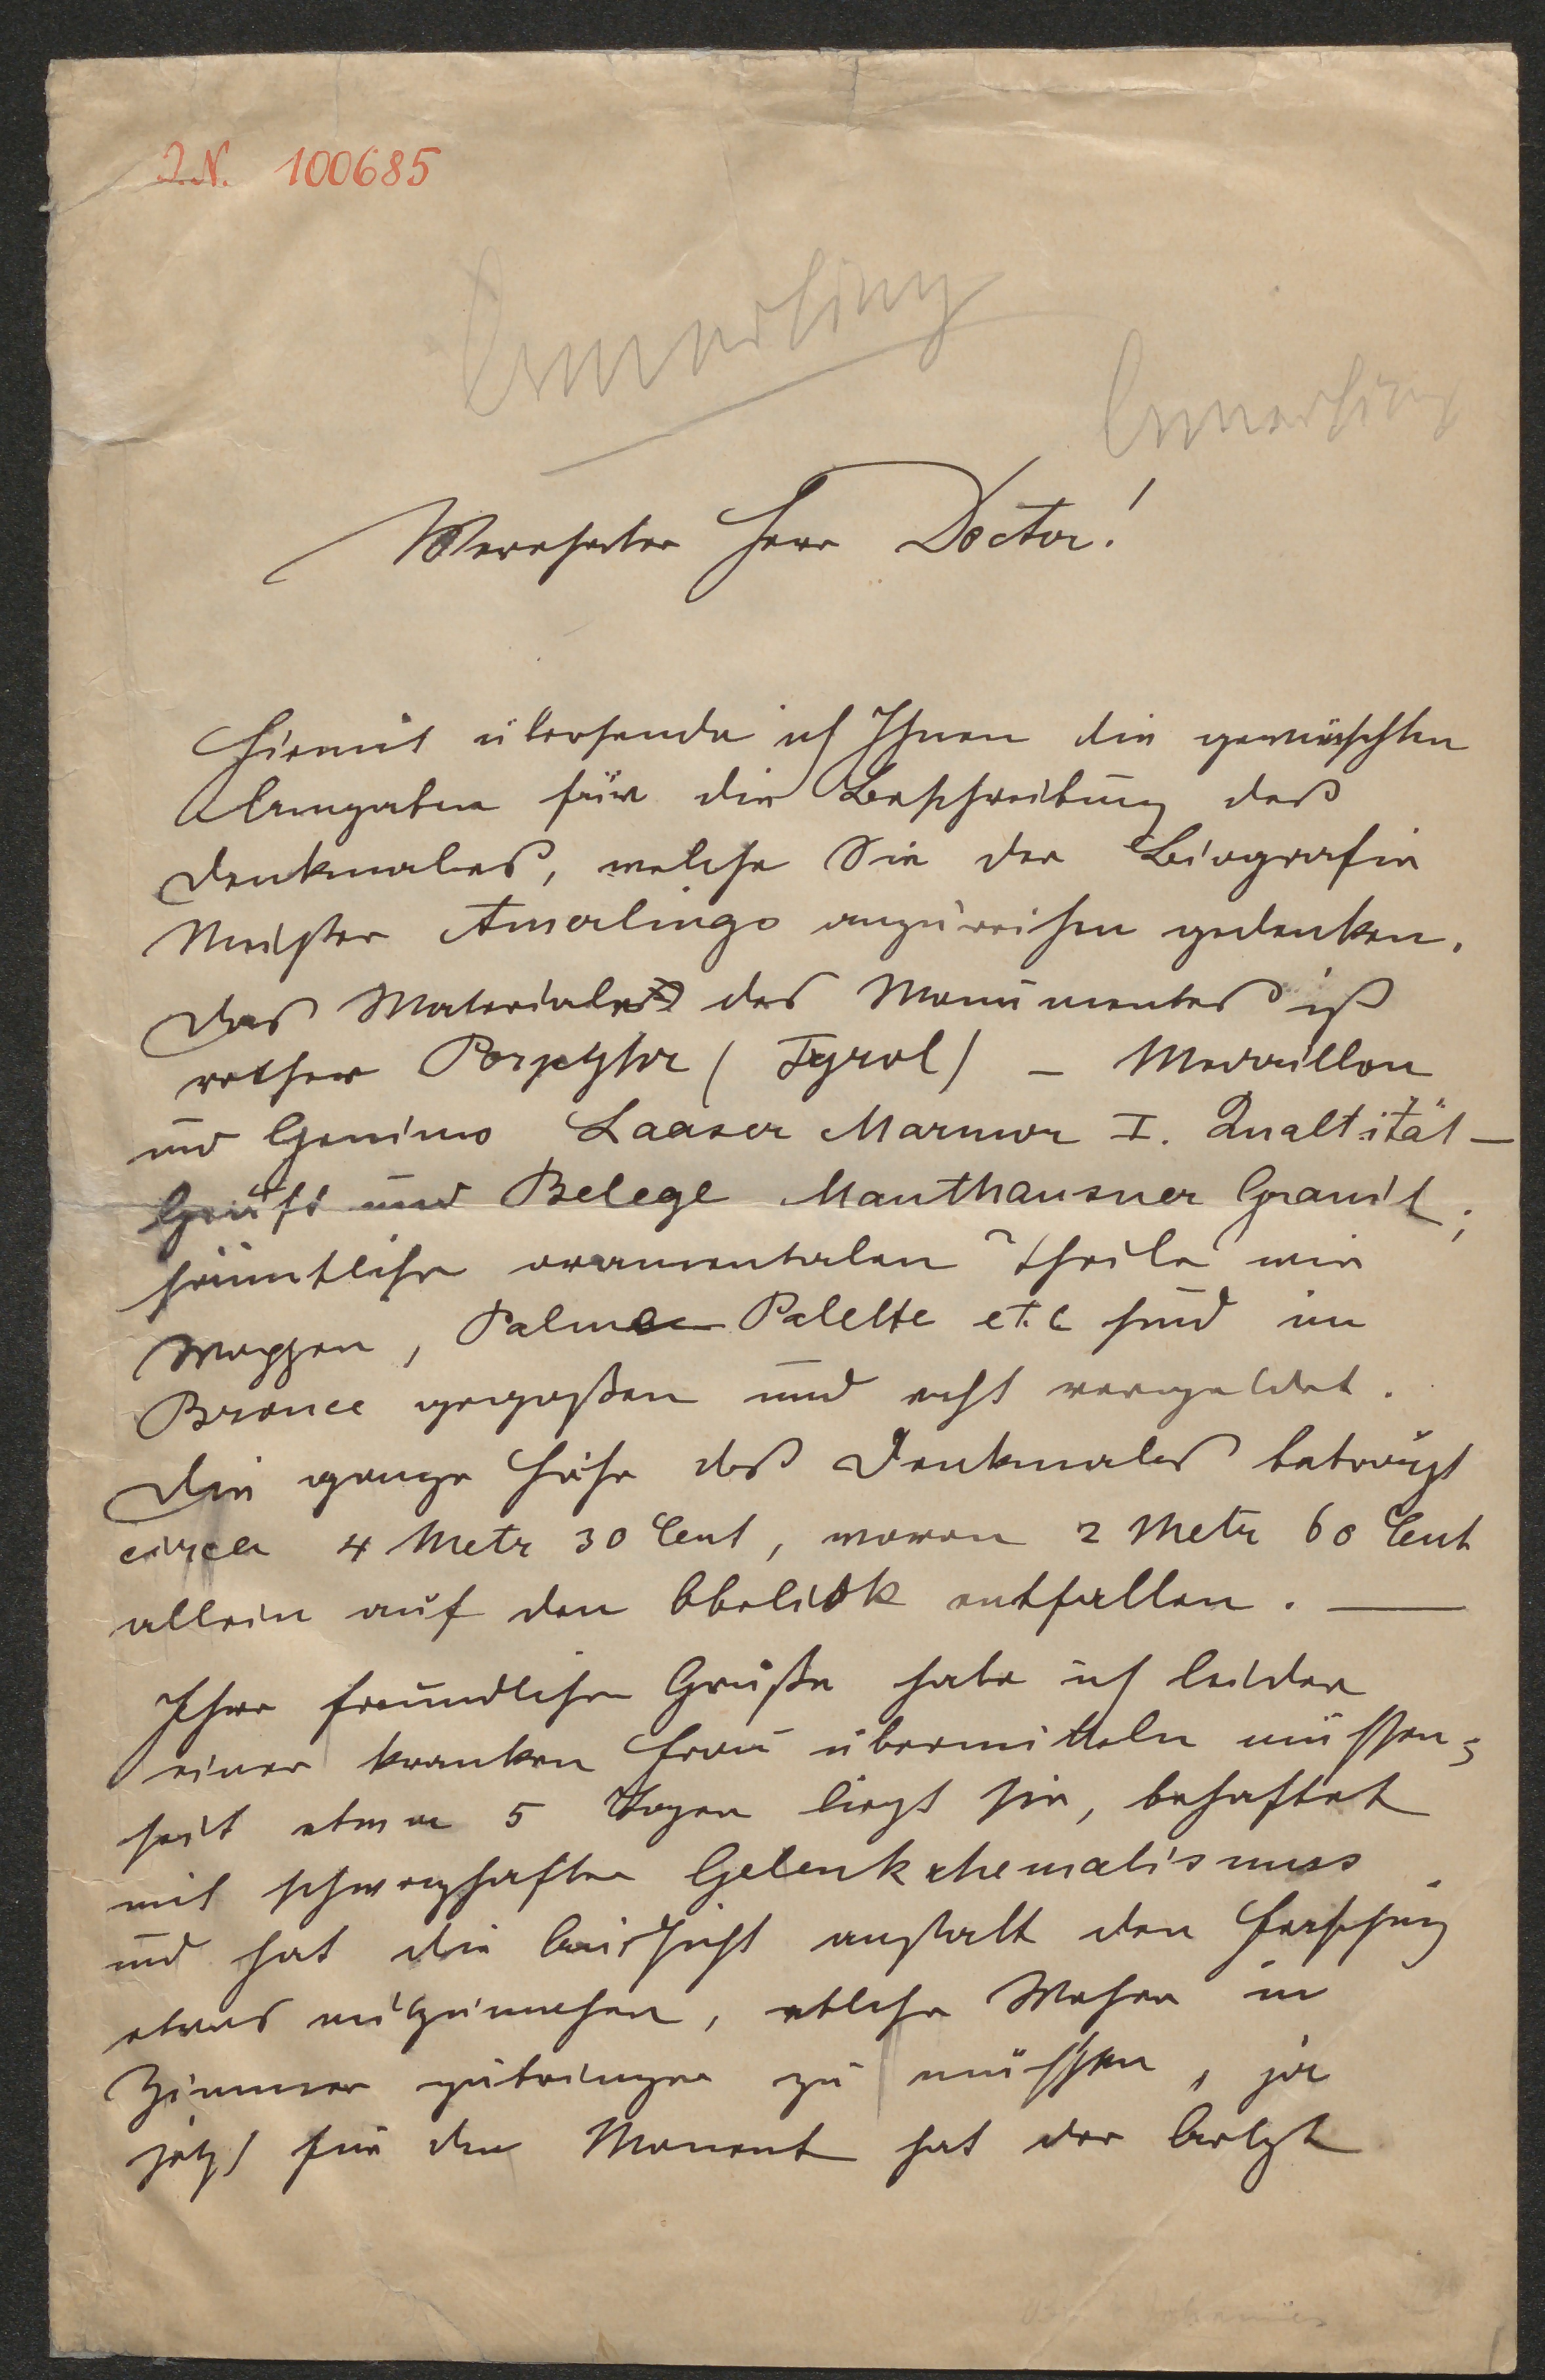 I.N. 100685
Amerling
Amerling
Verehrter Herr Doctor!
Hiemit übersende ich Ihnen die gewünschten
Aangaben für die Beschreibung deß
Denkmales, welche Sie der Biografie
Meister Amerlings anzureihen gedenken.
Das Materiale des Monumentes ist
rother Porphyr (Tyrol) – Medaillon
und Genius Laaser Marmor I. Qualtität –
Gruft und Belege Mauthausner Granit;
sämtliche oramentalen Theile wie
Wappen, Palme Palette etc sind in
Bronce gegoßen und echt vergoldet.
Die ganze Höhe deß Denkmales beträgt
circa 4 Metr 30 Cent, wovon 2 Metr 60 Cent
allein auf den Obelisk entfallen. —
Ihre freundliche Grüße habe ich leider
einer kranken Frau übermitteln müssen;
seit etwa 5 Tagen liegt sie, behaftet
mit schmerzhaften Gelenkrhematismus
und hat die Aussicht anstatt den Fasching
etwas mitzumachen, etliche Wochen im
Zimmer zubringen zu müssen, ja
jetzt für den Moment hat der Arzt